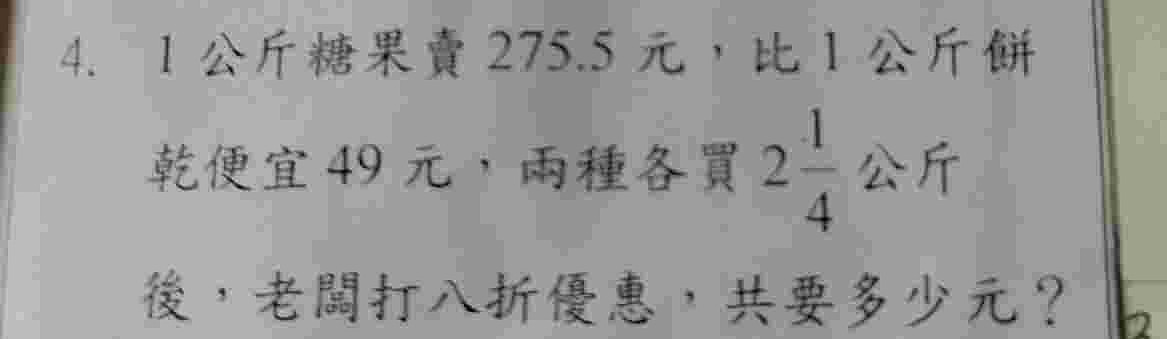 4. 1公斤糖果賣 275.5 元，比1公斤餅
乾便宜 49 元，兩種各買 2 1/4 公斤
後，老闆打八折優惠，共要多少元？